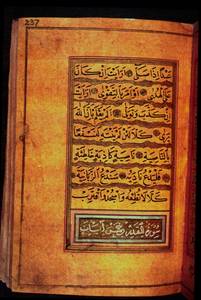 237
عَبْدًا إِذَا صَلَّىٰ أَرَأَيْتَ إِنْ كَانَ
عَلَى الْهُدَىٰ أَوْ أَمَرَ بِالتَّقْوَىٰ أَرَأَيْتَ
إِنْ كَذَّبَ وَتَوَلَّىٰ أَلَمْ يَعْلَمْ بِأَنَّ اللَّهَ
يَرَىٰ كَلَّا لَئِنْ لَمْ يَنْتَهِ لَنَسْفَعًا
بِالنَّاصِيَةِ نَاصِيَةٍ كَاذِبَةٍ خَاطِئَةٍ
فَلْيَدْعُ نَادِيَهُ سَنَدْعُ الزَّبَانِيَةَ
كَلَّا لَا تُطِعْهُ وَاسْجُدْ وَاقْتَرِبْ
سورة القدر خمس آيات